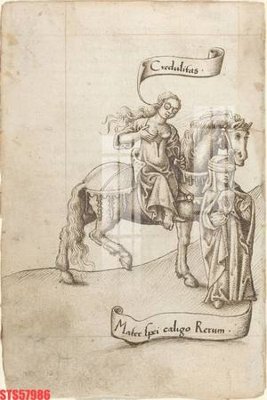 Credulitas ·
Mater spei caligo Rerum ·
STS57986